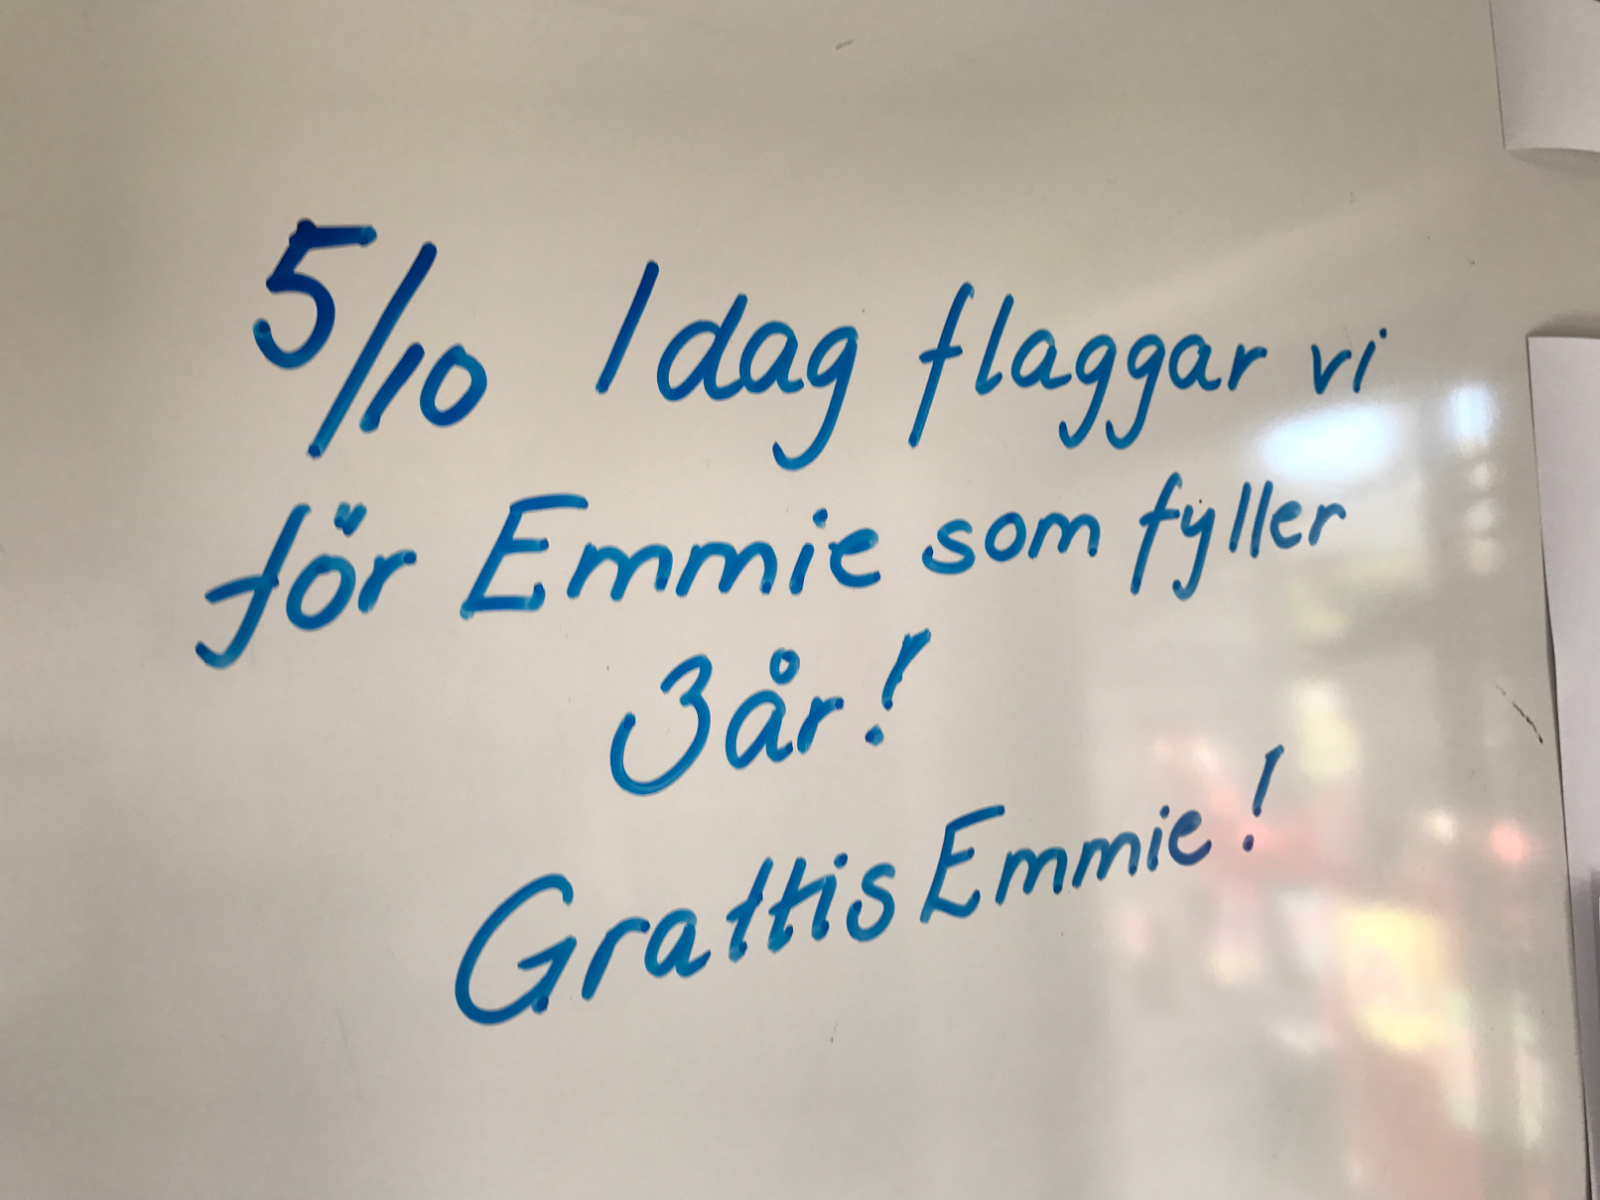 5/10 Idag flaggar vi
för Emmie som fyller
3år!
Grattis Emmie!